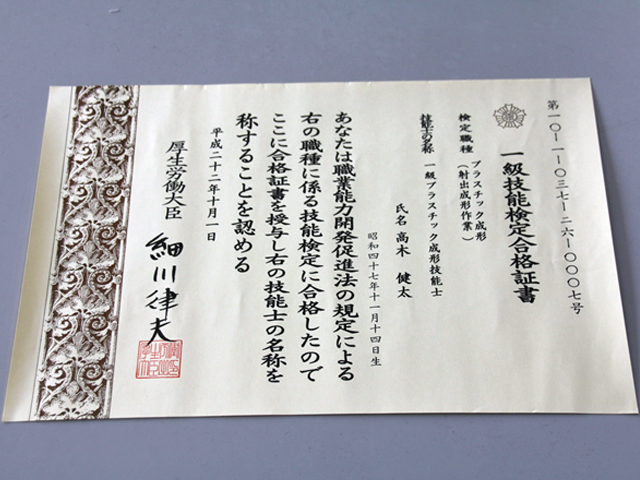 第一〇-一-〇三七-二六-〇〇〇七号
一級技能検定合格証書
検定職種
プラスチック成形
(射出成形作業)
技能士の名称
一級プラスチック成形技能士
氏名 高木 健太
昭和四十七年十一月十四日生
あなたは職業能力開発促進法の規定による
右の職種に係る技能検定に合格したので
ここに合格証書を授与し右の技能士の名称を
称することを認める
平成二十二年十月一日
厚生労働大臣
細川律夫